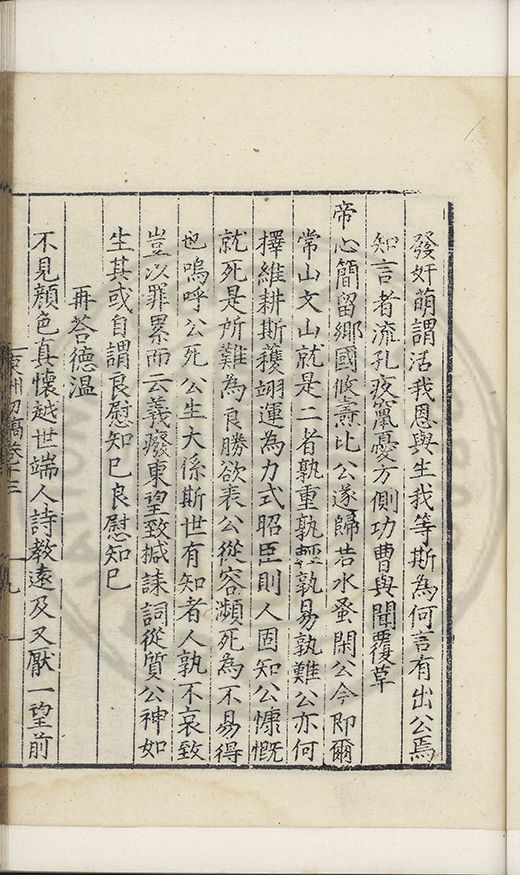 發奸萌謂活我恩與生我等斯為何言有出公焉
知言者流孔疚竄憂方側功曹與聞覆草
帝心簡留鄉國攸壽比公遂歸苦水蚤閑公今即爾
常山文山就是二者孰重孰輕孰易孰難公亦何
擇維耕斯穫翊運為力式昭臣則人固知公慷慨
就死是所難為良勝欲表公從容瀕死為不易得
也嗚呼公死公生大係斯世有知者人孰不哀致
豈以罪累而云義癈東望致掝誄詞從質公神如
生其或自謂良慰知巳良慰知巳
再荅德温
不見顔色真懷越世端人詩教遠及又厭一望前
東洲初稿卷十三
九